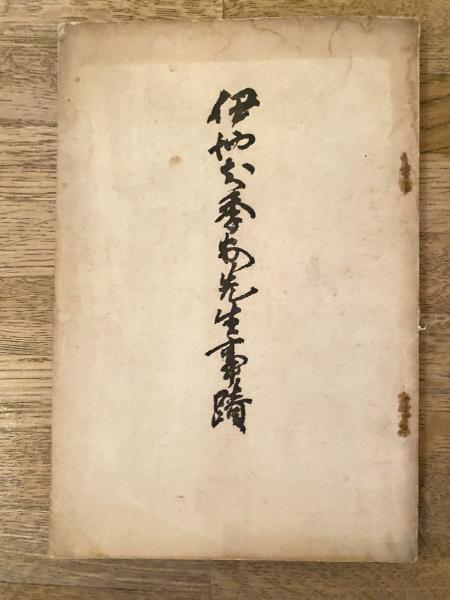 伊地知季安先生事蹟